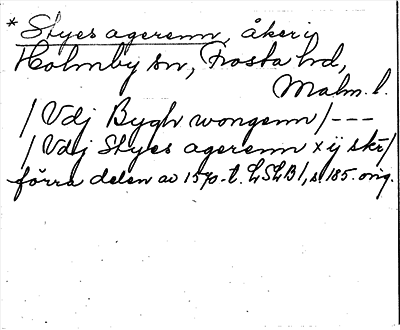 * Styes agerenn, åker i
Holmby sn, Frosta hd,
Malm. l.
/ Vdj Bygh wongenn / ---
/ Vdj Styes agerenn x ij skr/
förra delen av 1570-t. LSLB 1, s 185. orig.